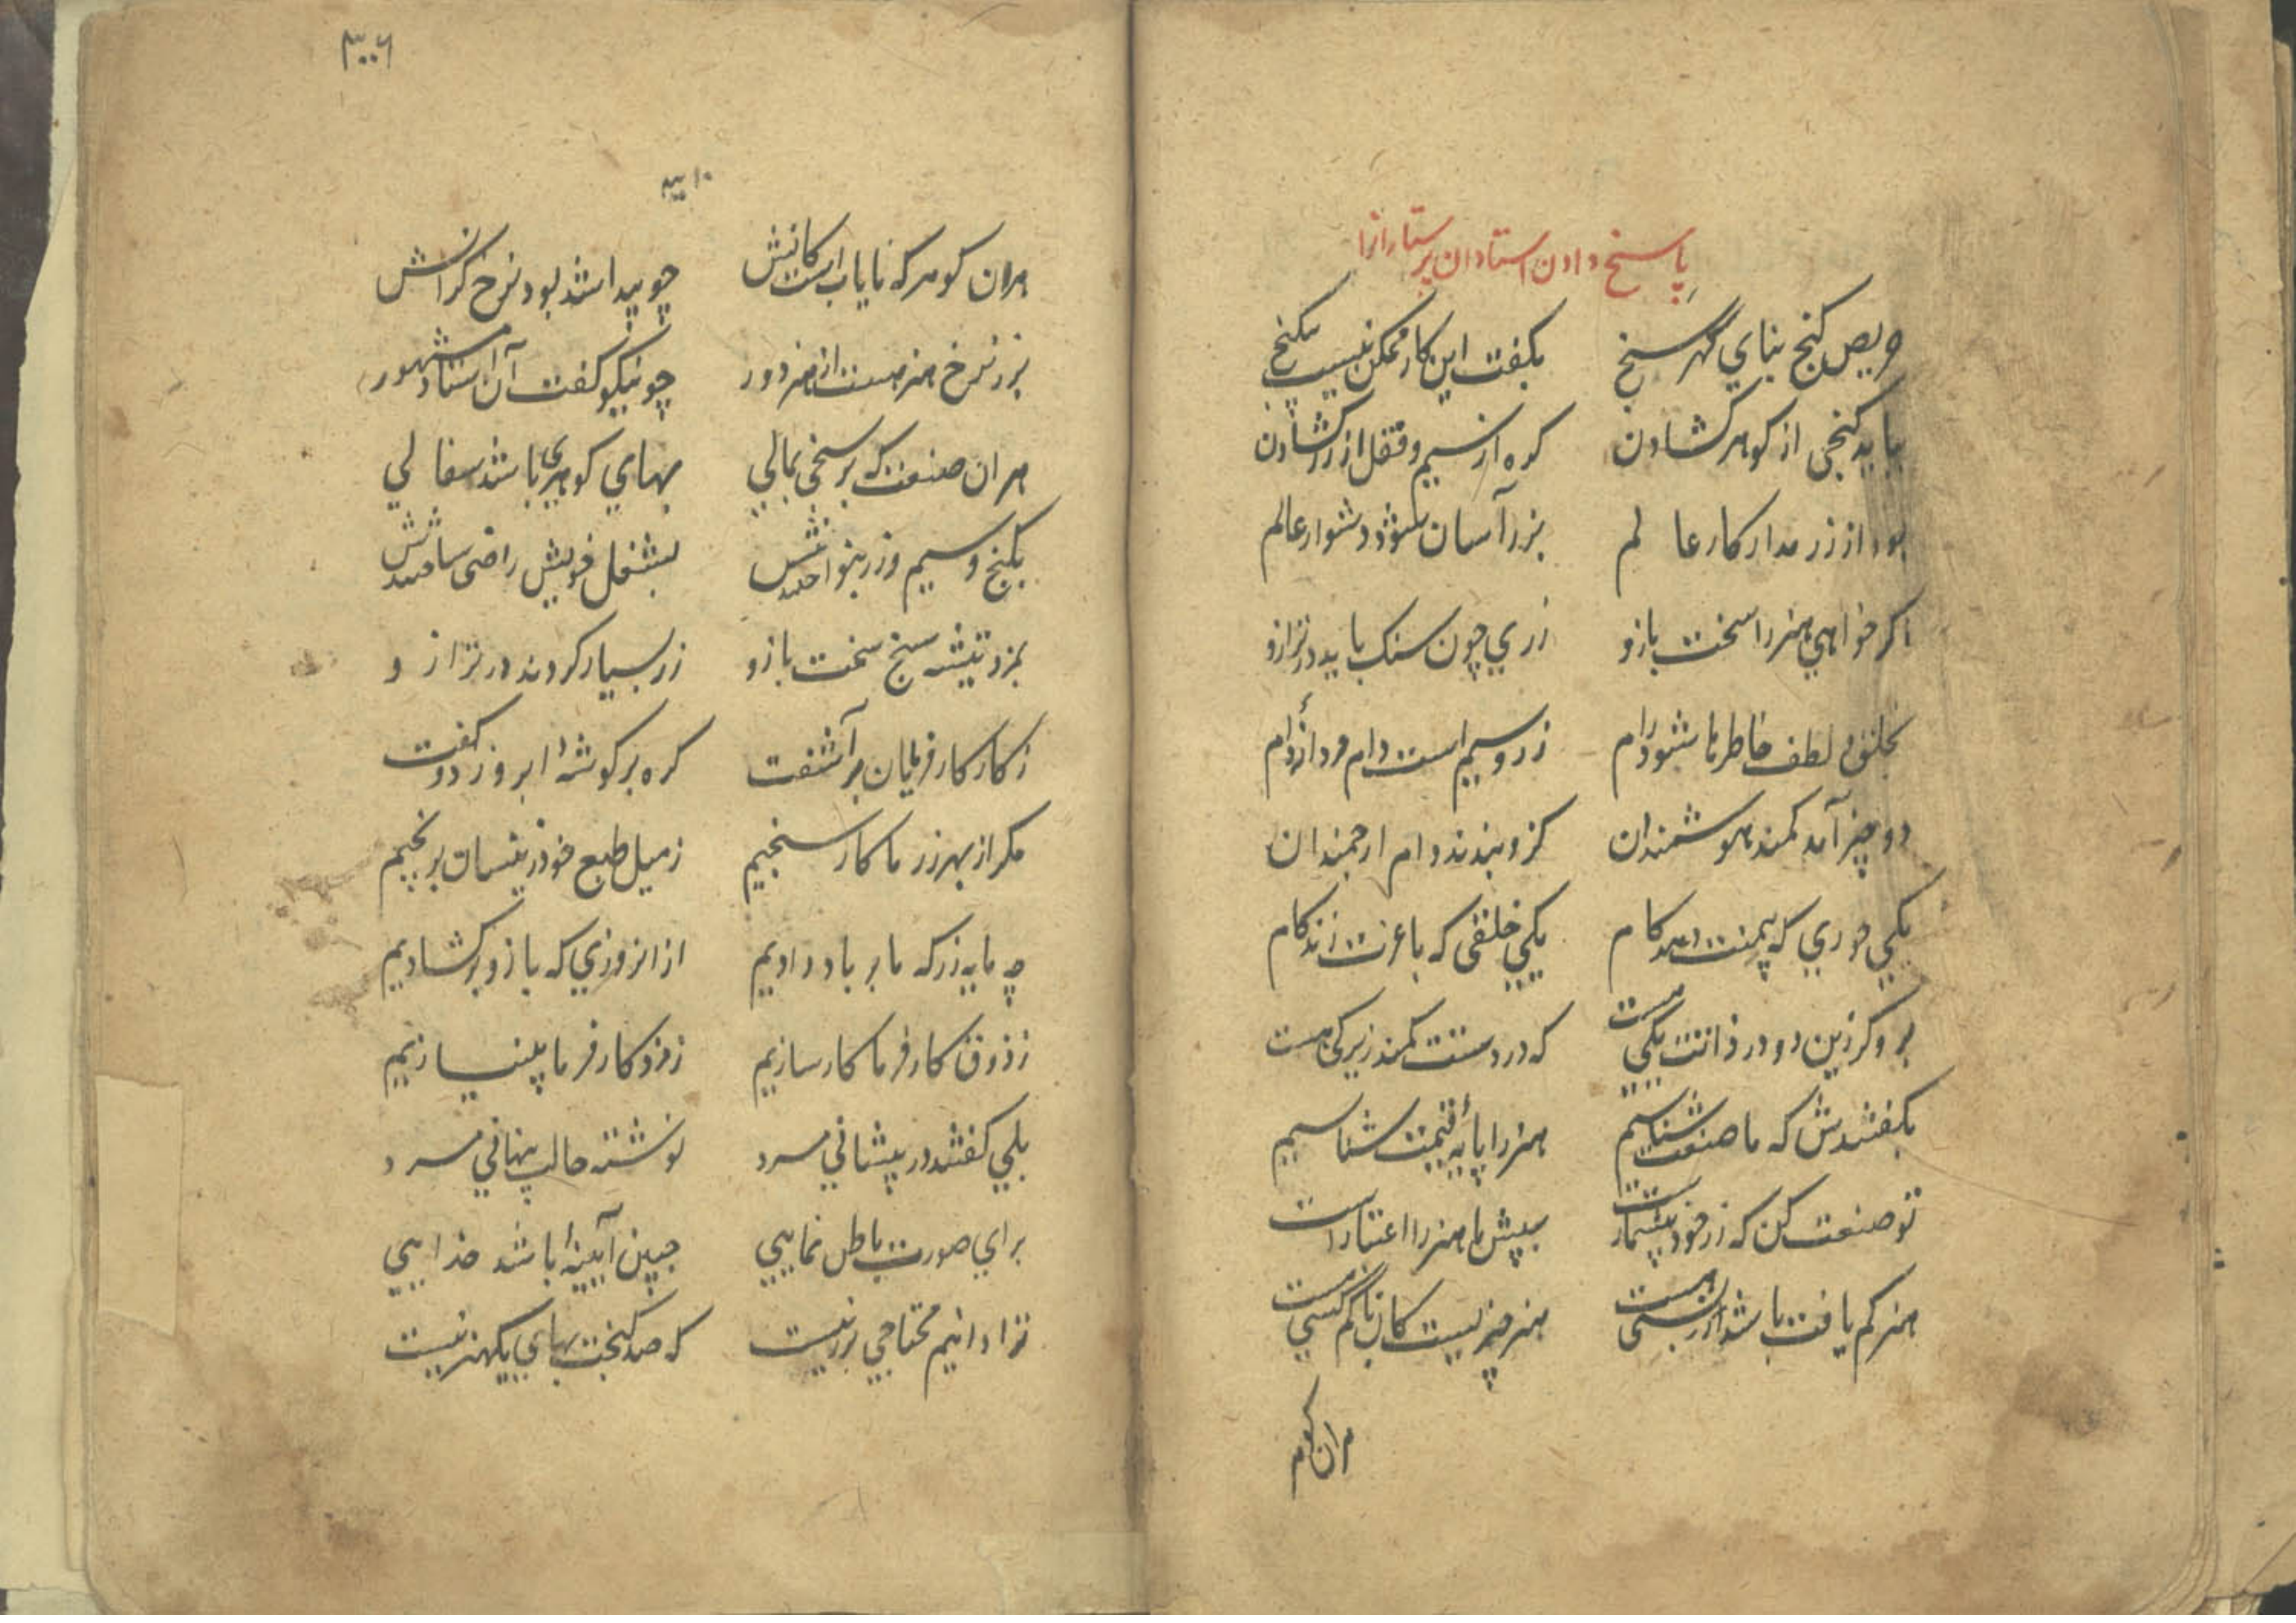 پاسخ دادن استادان پرستارانرا
حریص گنج بنای گهر سنج بگفت این کار ممکن نیست بیگنج
بباید گنجی از گوهر گشادن گره از سیم و قفل از زر گشادن
بود از زر مدار کار عالم بزر آسان شود دشوار عالم
اگر خواهی هنر را سخت بازو زری چون سنگ باید در ترازو
بخلق و لطف خاطرها شود رام زر و سیم است دام مرد
دو چیز آمد کمند هوشمندان کزو بندند دام ارجمندان
یکی جودی که بیمنت دهد کام یکی خلقی که با عزت زند کام
برو گر زین دو در ذاتت یکی هست که در دستت کمند زیرکی هست
بگفتندش که ما صنعت شناسیم هنر را پایه قیمت شناسیم
تو صنعت کن که زر خود بیشمار است بپیش ما هنر را اعتبار است
هنر کم یافت باشد زر بسی هست هنر چیزیست کان با کم کسی هست
هران گوهر
۳۰۰۶
۳۱۰
هران گوهر که نایاب است کانش چو پیدا شد بود نرخ گرانش
بزر نرخ هنر هست از هنر دور چو نیکو گفت آن استاد مشهور
هران صنعت که برسنجی بمالی بهای گوهری باشد سفالی
بگنج و سیم و زر بنواختندش بشغل خویش راضی ساختندش
بمزد تیشه سنج سخت بازو زر بسیار کردند در ترازو
ز کار کارفرمایان برآشفت گره بر گوشهٔ ابرو زد و گفت
مگر از بهر زر ما کار سنجیم ز میل طبع خود زینسان برنجیم
چه مایه زر که ما بر باد دادیم از انروزی که بازو برگشادیم
ز ذوق کارفرما کار سازیم ز مزد کارفرما بینیازیم
بلی گفتند در پیشانی مرد نوشته حالت پنهانی مرد
برای صورت باطل نمایی جبین آیینهٔ باشد خدایی
ترا دانیم محتاجی بزر نیست که صد گنجت بهای یکهنر نیست